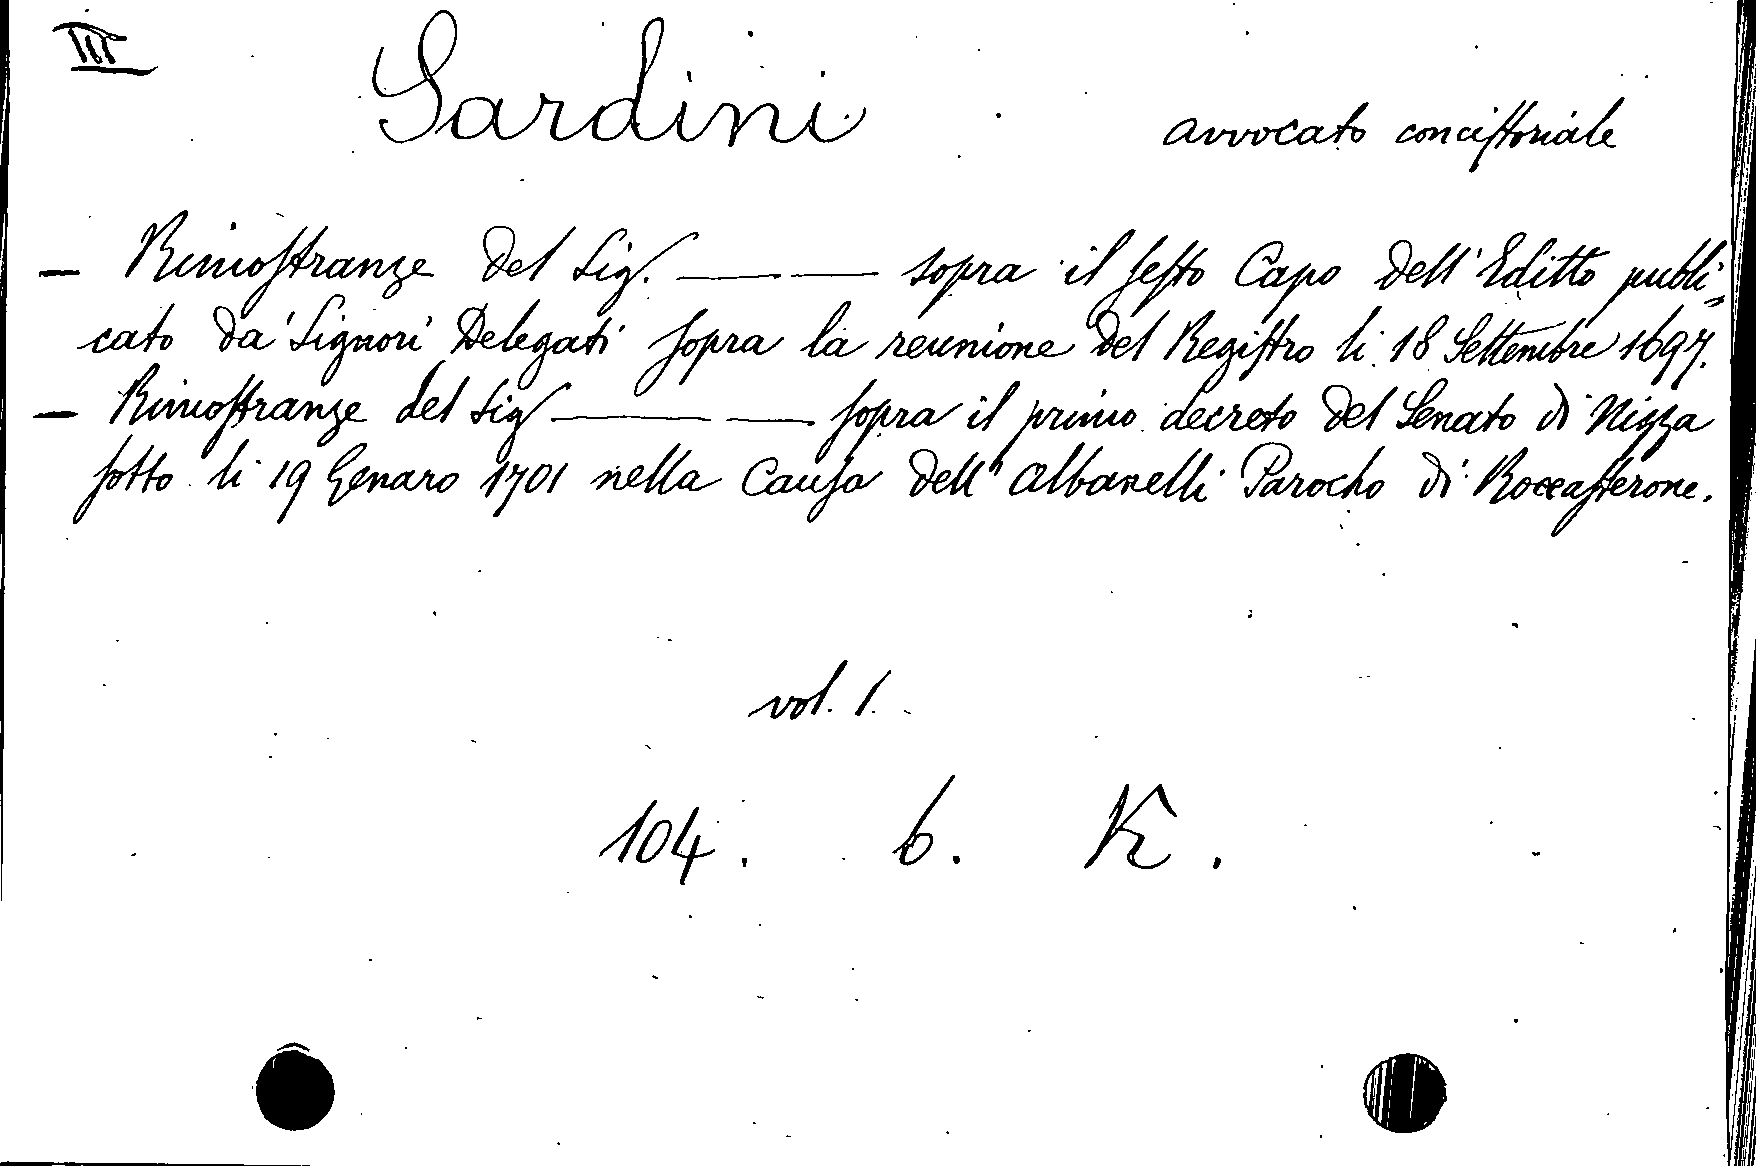 III
Sardini avvocato concistoriale
— Rimostranze del Sig. — — sopra il sesto Capo dell'Editto publi-
cato da' Signori Delegati sopra la reunione del Registro li 18 Settembre 1697.
— Rimostranze del Sig — — sopra il primo decreto del Senato di Nizza
sotto li 19 Genaro 1701 nella Causa dell' Albanelli Parocho di Roccasterone.
vol. 1.
104. b. K.